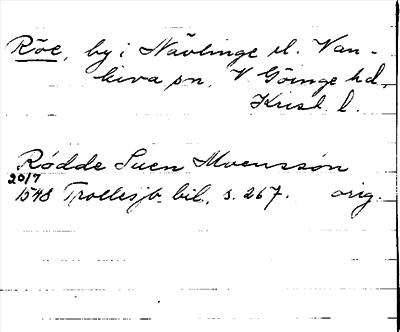 Röe, by i Nävlinge el. Van-
kiva sn, V. Göinge hd,
Krist. l.
Rødde Suen Moensson
20/7
1548 Trollesjb. bil. s. 267. orig.